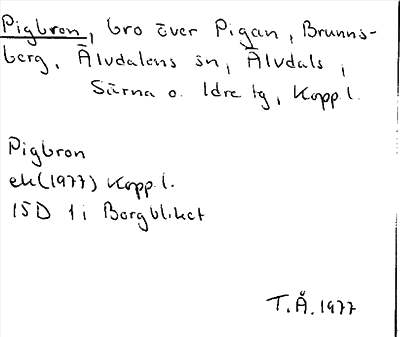 Pigbron, bro över Pigan, Brunns-
berg, Älvdalens sn, Älvdals,
Särna o. Idre tg, Kopp.l.
Pigbron
ek(1977) Kopp.l.
15D 1i Borgbliket
T.Å.1977